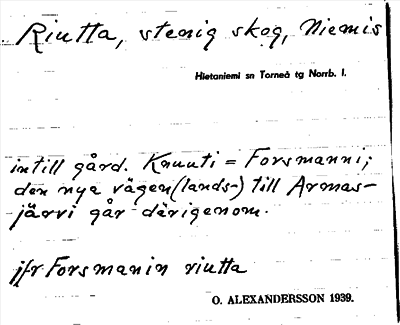 Riutta, stenig skog, Niemis
Hietaniemi sn Torneå tg Norrb. l.
intill gård. Knuuti = Forsmanni;
den nya vägen (lands-) till Armas-
järvi går därigenom.
jfr Forsmanin riutta
O. ALEXANDERSSON 1939.